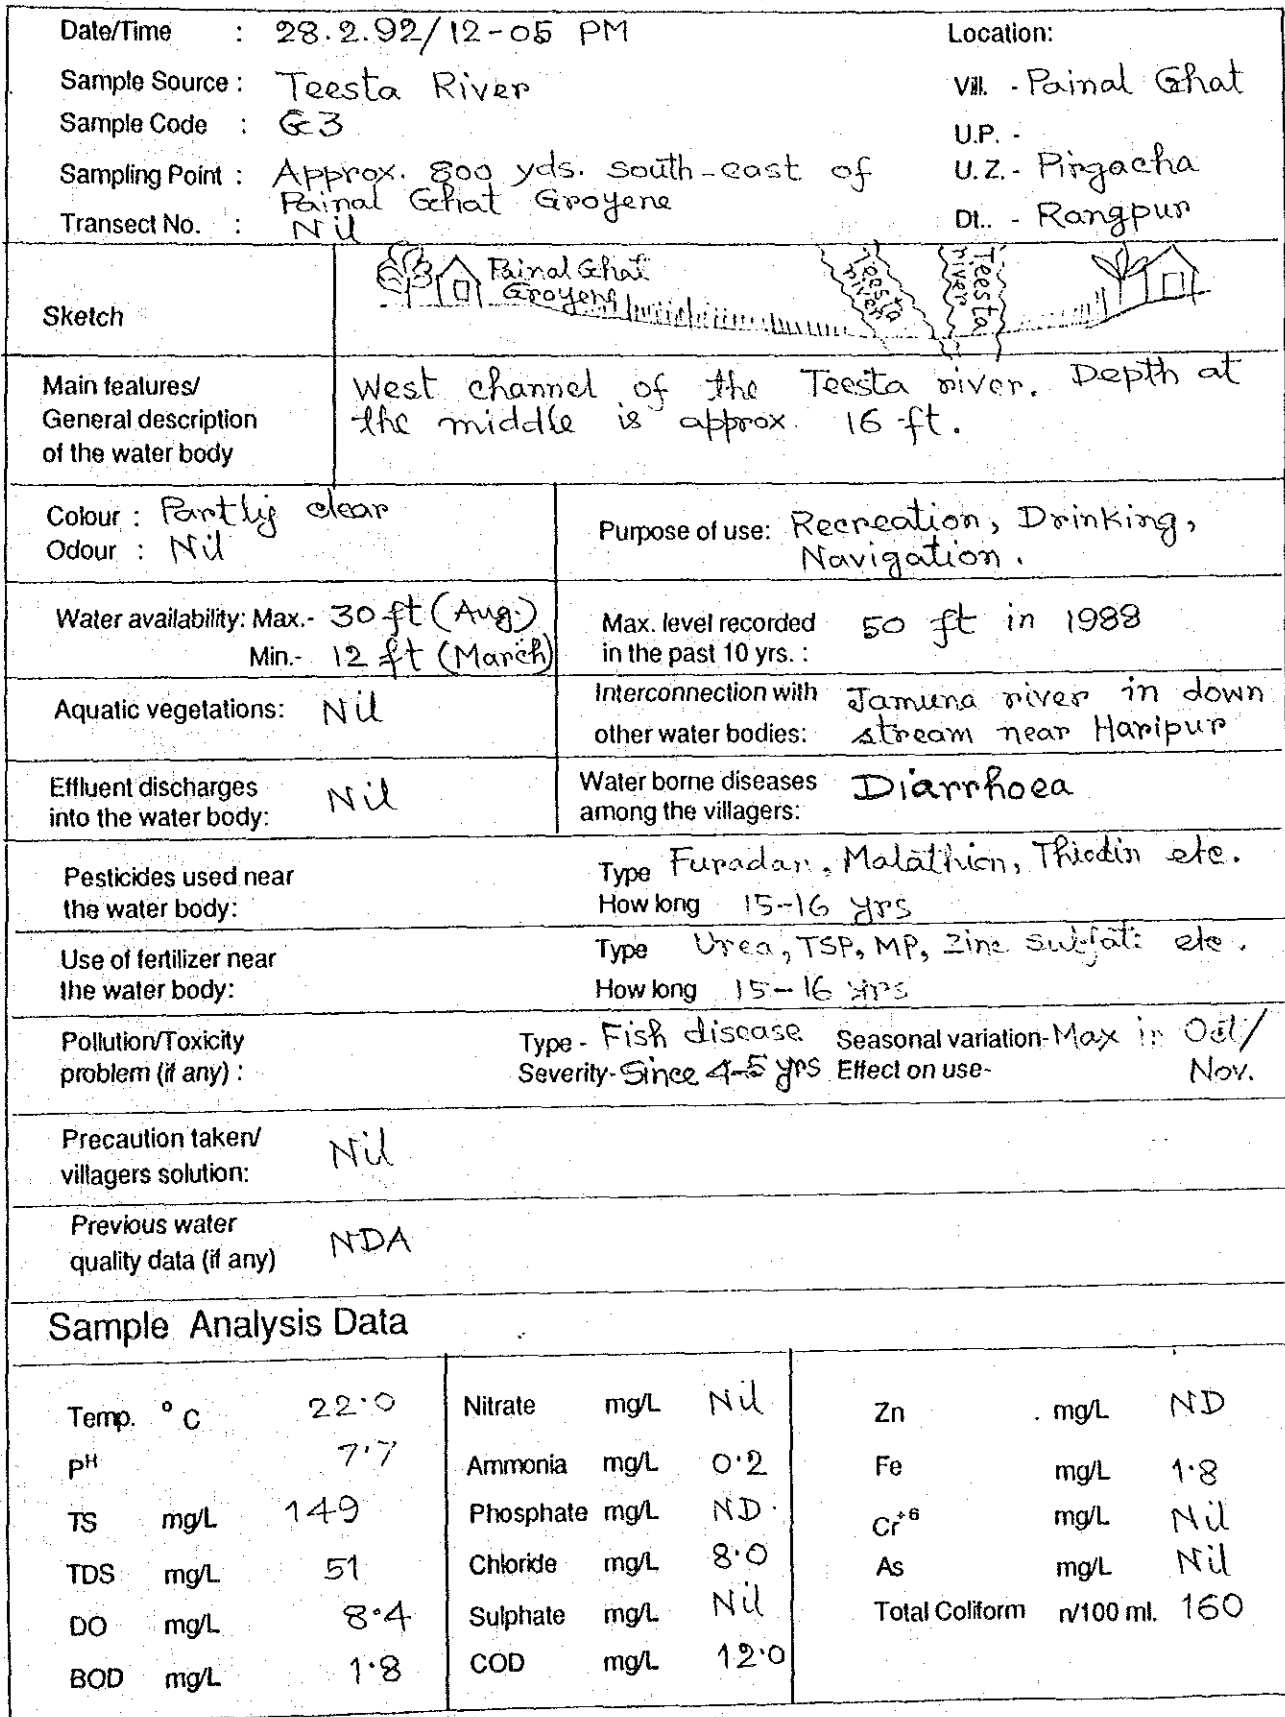 Date/Time : 28.2.92/12-05 PM
Location:
Sample Source : Teesta River
Vill. - Painal Ghat
Sample Code : G3
U.P. -
Sampling Point : Approx. 800 yds. south-east of
Painal Ghat Groyene
U.Z. - Pirgacha
Transect No. : Nil
Dt.. - Rangpur
Sketch
Painal Ghat
Groyene
Teesta
river
Teesta
river
Main features/
General description
of the water body
West channel of the Teesta river. Depth at
the middle is approx. 16 ft.
Colour : Partly clear
Odour : Nil
Purpose of use: Recreation, Drinking,
Navigation.
Water availability: Max.- 30 ft (Aug.)
Min.- 12 ft (March)
Max. level recorded
in the past 10 yrs. :
50 ft in 1988
Aquatic vegetations: Nil
Interconnection with
other water bodies:
Jamuna river in down
stream near Haripur
Effluent discharges
into the water body:
Nil
Water borne diseases
among the villagers:
Diarrhoea
Pesticides used near
the water body:
Type Furadan, Malathion, Thiodin etc.
How long 15-16 yrs
Use of fertilizer near
the water body:
Type Urea, TSP, MP, Zinc Sulfate etc.
How long 15-16 yrs
Pollution/Toxicity
problem (if any) :
Type - Fish disease Seasonal variation- Max in Oct/
Nov.
Severity- Since 4-5 yrs Effect on use-
Precaution taken/
villagers solution:
Nil
Previous water
quality data (if any)
NDA
Sample Analysis Data
Temp. °C 22.0
pH 7.7
TS mg/L 149
TDS mg/L 51
DO mg/L 8.4
BOD mg/L 1.8
Nitrate mg/L Nil
Ammonia mg/L 0.2
Phosphate mg/L ND.
Chloride mg/L 8.0
Sulphate mg/L Nil
COD mg/L 12.0
Zn . mg/L ND
Fe mg/L 1.8
Cr+6 mg/L Nil
As mg/L Nil
Total Coliform n/100 ml. 160